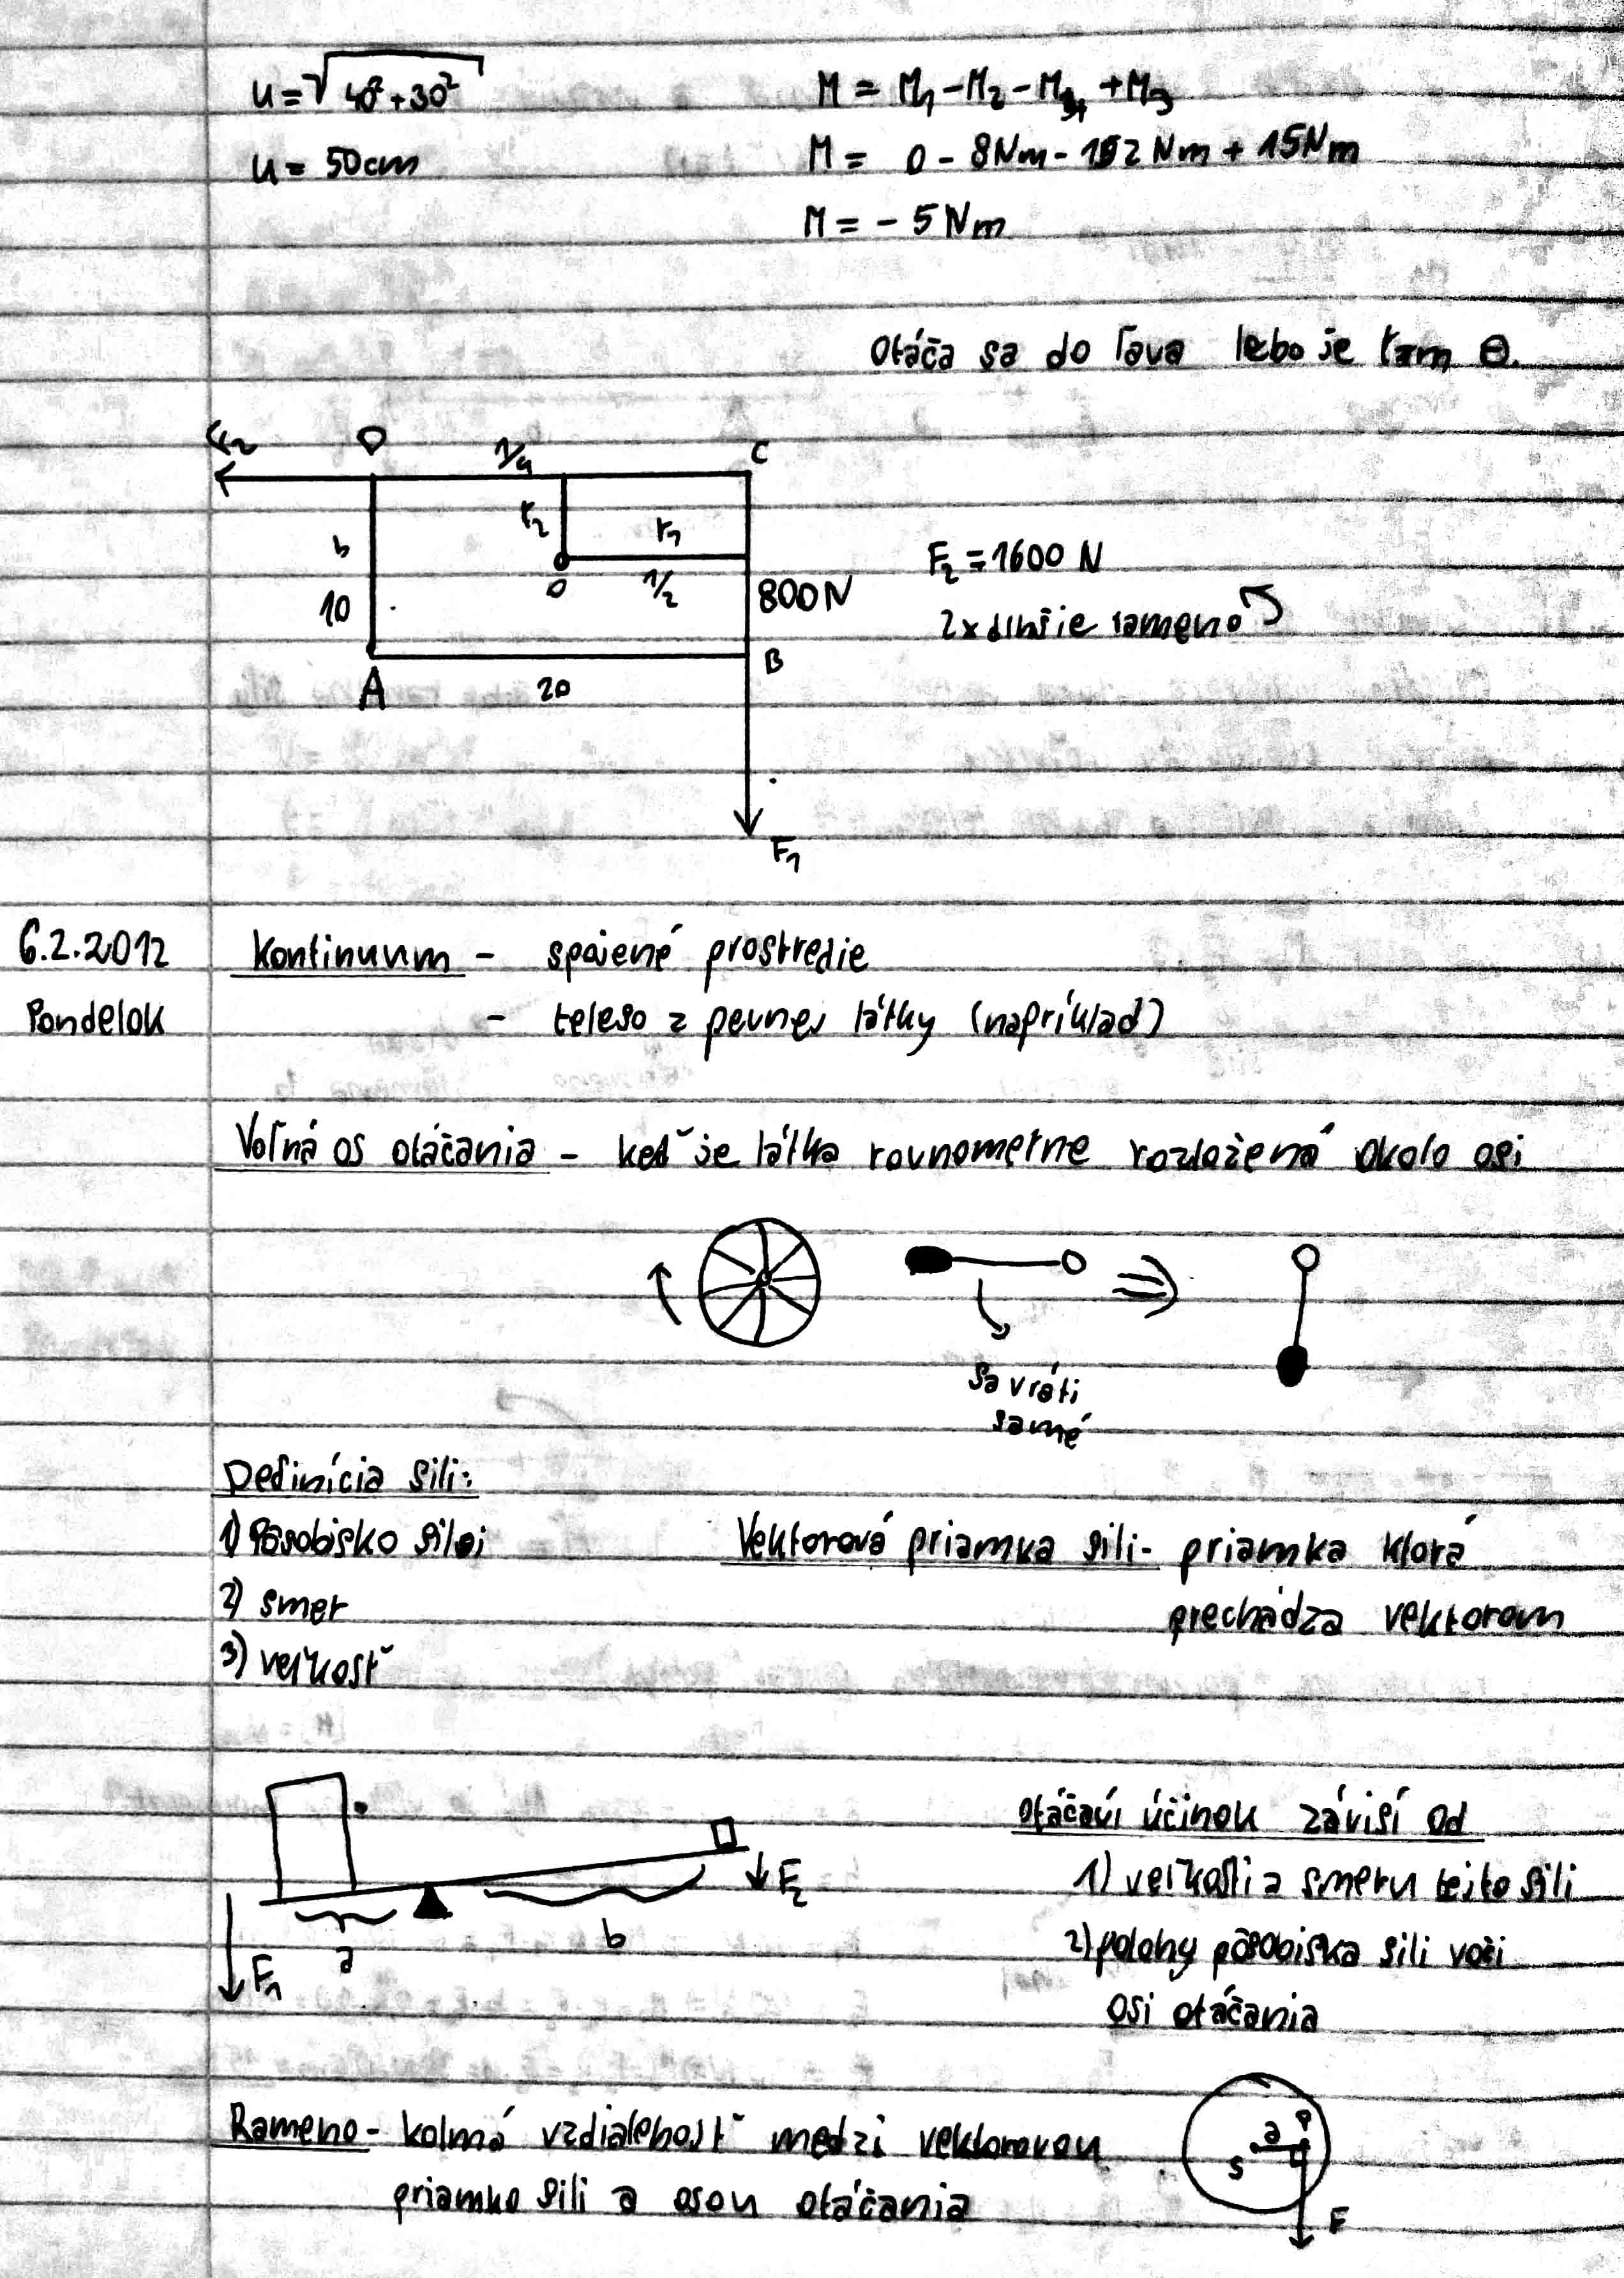 u = √40²+30²
u = 50cm
M = M₁ - M₂ - M₃₁ + M₃
M = 0 - 8Nm - 12 Nm + 15Nm
M = - 5 Nm
Otáča sa do ľava lebo je tam ⊖.
F₂ D 1/4 C
r₂ r₁
b
O 1/2
10 800N
A 20 B
F₁
F₂ = 1600 N
2x dlhšie rameno
6.2.2012
Pondelok
Kontinuum - spojené prostredie
- teleso z pevnej látky (napríklad)
Voľná os otáčania - keď je látka rovnomerne rozložená okolo osi
sa vráti
samé
Definícia sili:
1) Pôsobisko sili
2) smer
3) veľkosť
Vektorová priamka sili - priamka ktorá
prechádza vektorom
F₁ a b F₂
otáčaví účinok závisí od
1) veľkosti a smeru tejto sili
2) polohy pôsobiska sili voči
osi otáčania
Rameno - kolmá vzdialenosť medzi vektorovou
priamko sili a osou otáčania
S a P
F